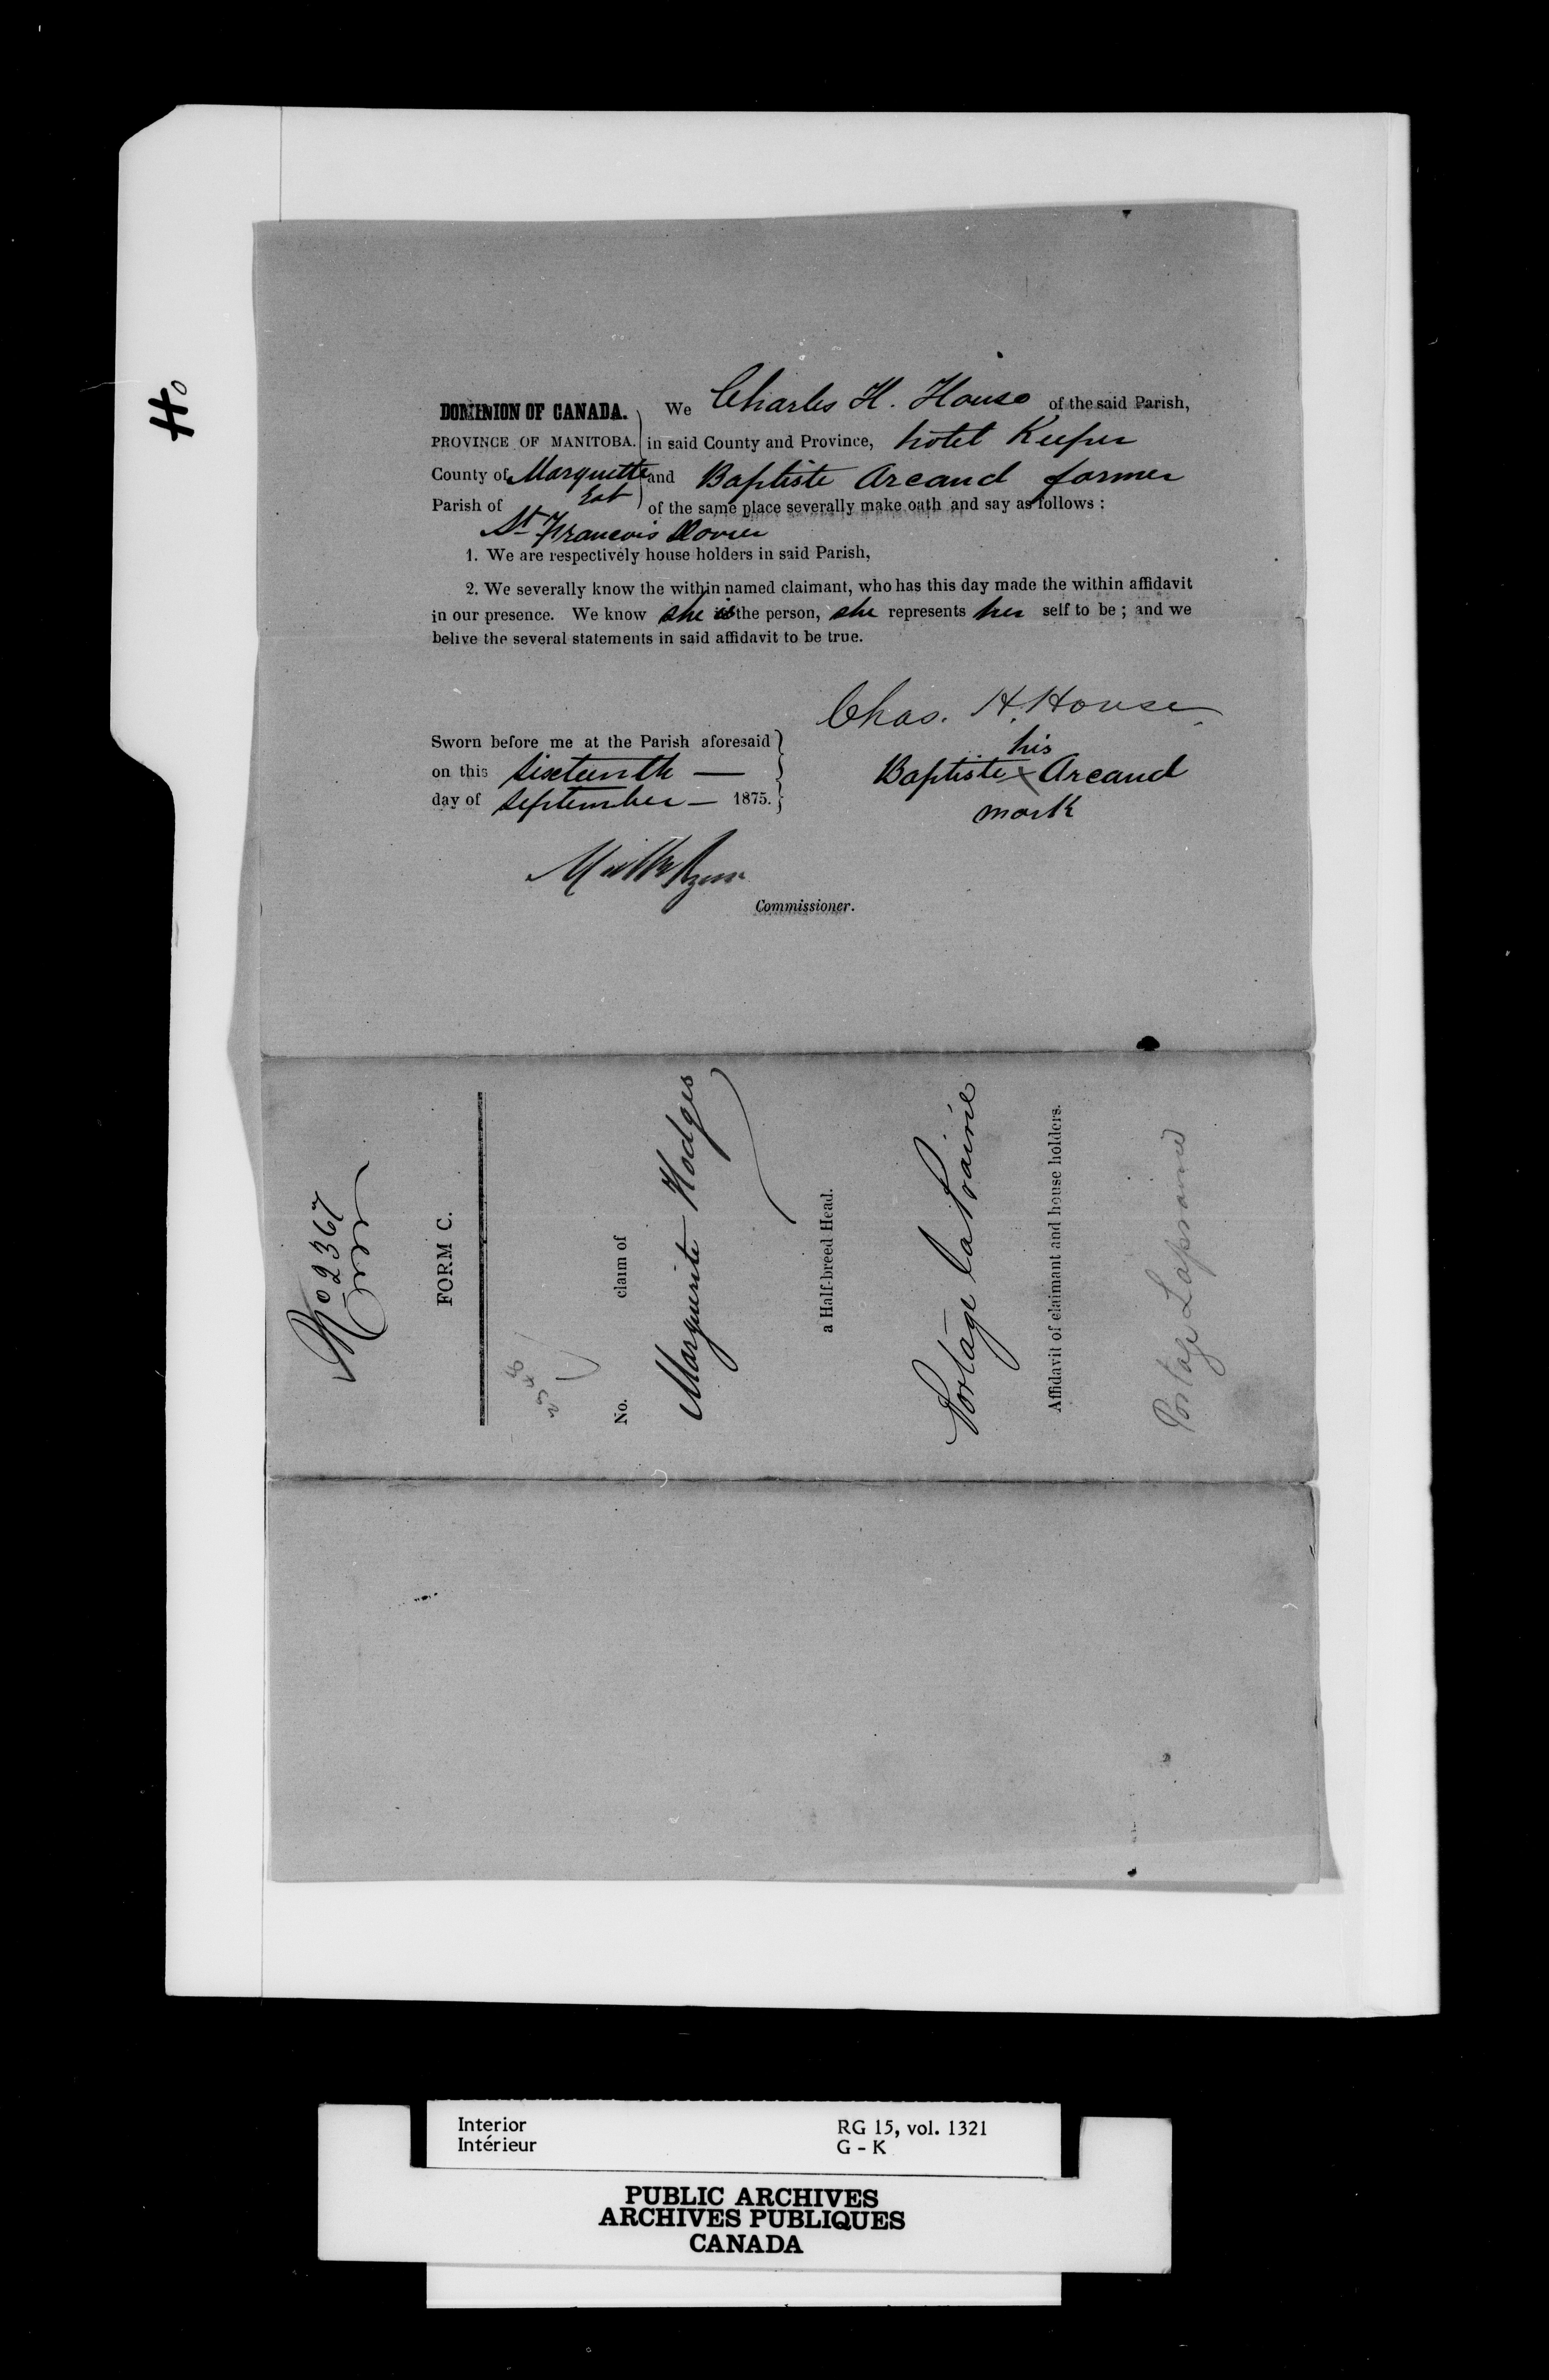 Ho
DOMINION OF CANADA. We Charles H. House of the said Parish,
PROVINCE OF MANITOBA. in said County and Province, hotel Keeper
County of Marquette and Baptiste Arcand farmer
Parish of East of the same place severally make oath and say as follows :
St Francois Xavier
1. We are respectively house holders in said Parish,
2. We severally know the within named claimant, who has this day made the within affidavit
in our presence. We know she is the person, she represents her self to be ; and we
belive the several statements in said affidavit to be true.
Chas. H. House
Sworn before me at the Parish aforesaid
his
on this sixteenth —
Baptiste x Arcand
day of september — 1875.
mark
Commissioner.
No 2367
FORM C.
No. claim of
Marguerite Hodges
a Half-breed Head.
Portage la Prairie
Affidavit of claimant and house holders.
Portage Laprairie
Interior RG 15, vol. 1321
Intérieur G - K
PUBLIC ARCHIVES
ARCHIVES PUBLIQUES
CANADA